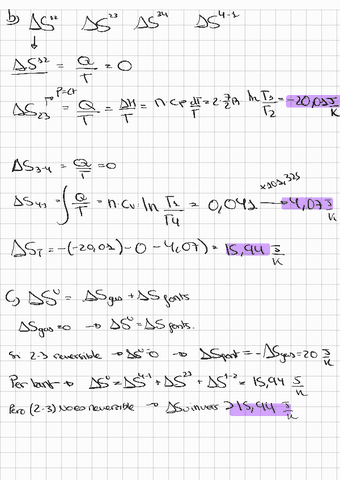 b) ΔS¹² ΔS²³ ΔS³⁴ ΔS⁴⁻¹
ΔS¹² = Q/T = 0
P=ct
ΔS₂₃ = Q/T = ΔH/T = n·Cp dT/T = 2·7/2R ln T₃/T₂ = -20,01 J/K
ΔS₃₋₄ = Q/T = 0
ΔS₄₁ = ∫ Q/T = n·Cv·ln T₁/T₄ = 0,041 → -4,07 J/K
×101,325
ΔS_T = -(-20,01) - 0 - 4,07) = 15,94 J/K
C) ΔSᵘ = ΔSgas + ΔS fonts
ΔSgas = 0 → ΔSᵘ = ΔS fonts.
Si 2-3 reversible → ΔSᵘ = 0 → ΔSfont = -ΔSgas = 20 J/K
Per tant → ΔSᵘ = ΔS⁴⁻¹ + ΔS²³ + ΔS¹⁻² = 15,94 J/K
Pero (2-3) No es reversible → ΔS univers > 15,94 J/K